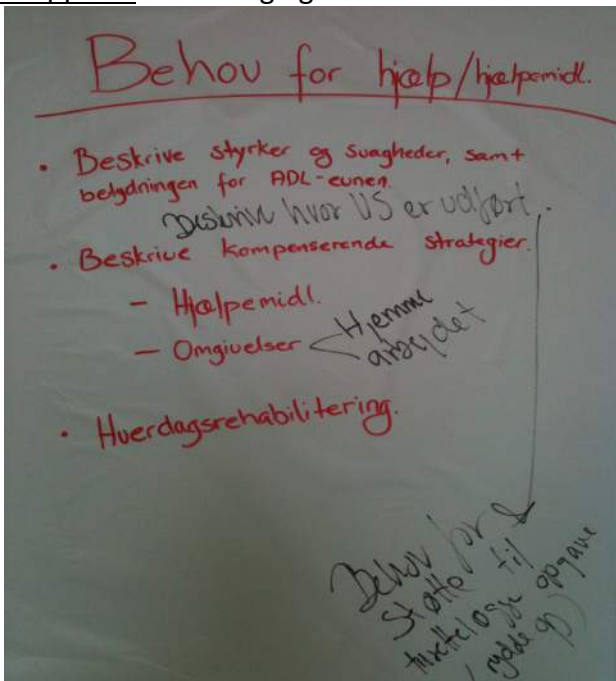 Behov for hjælp/hjælpemidl.
• Beskrive styrker og svagheder, samt
betydningen for ADL-evnen.
Beskrive hvor US er udført.
• Beskrive kompenserende strategier.
– Hjælpemidl.
– Omgivelser < Hjemme
arbejdet
• Hverdagsrehabilitering.
Behov for
støtte til
tilrettelægge opgave
(rydde op)